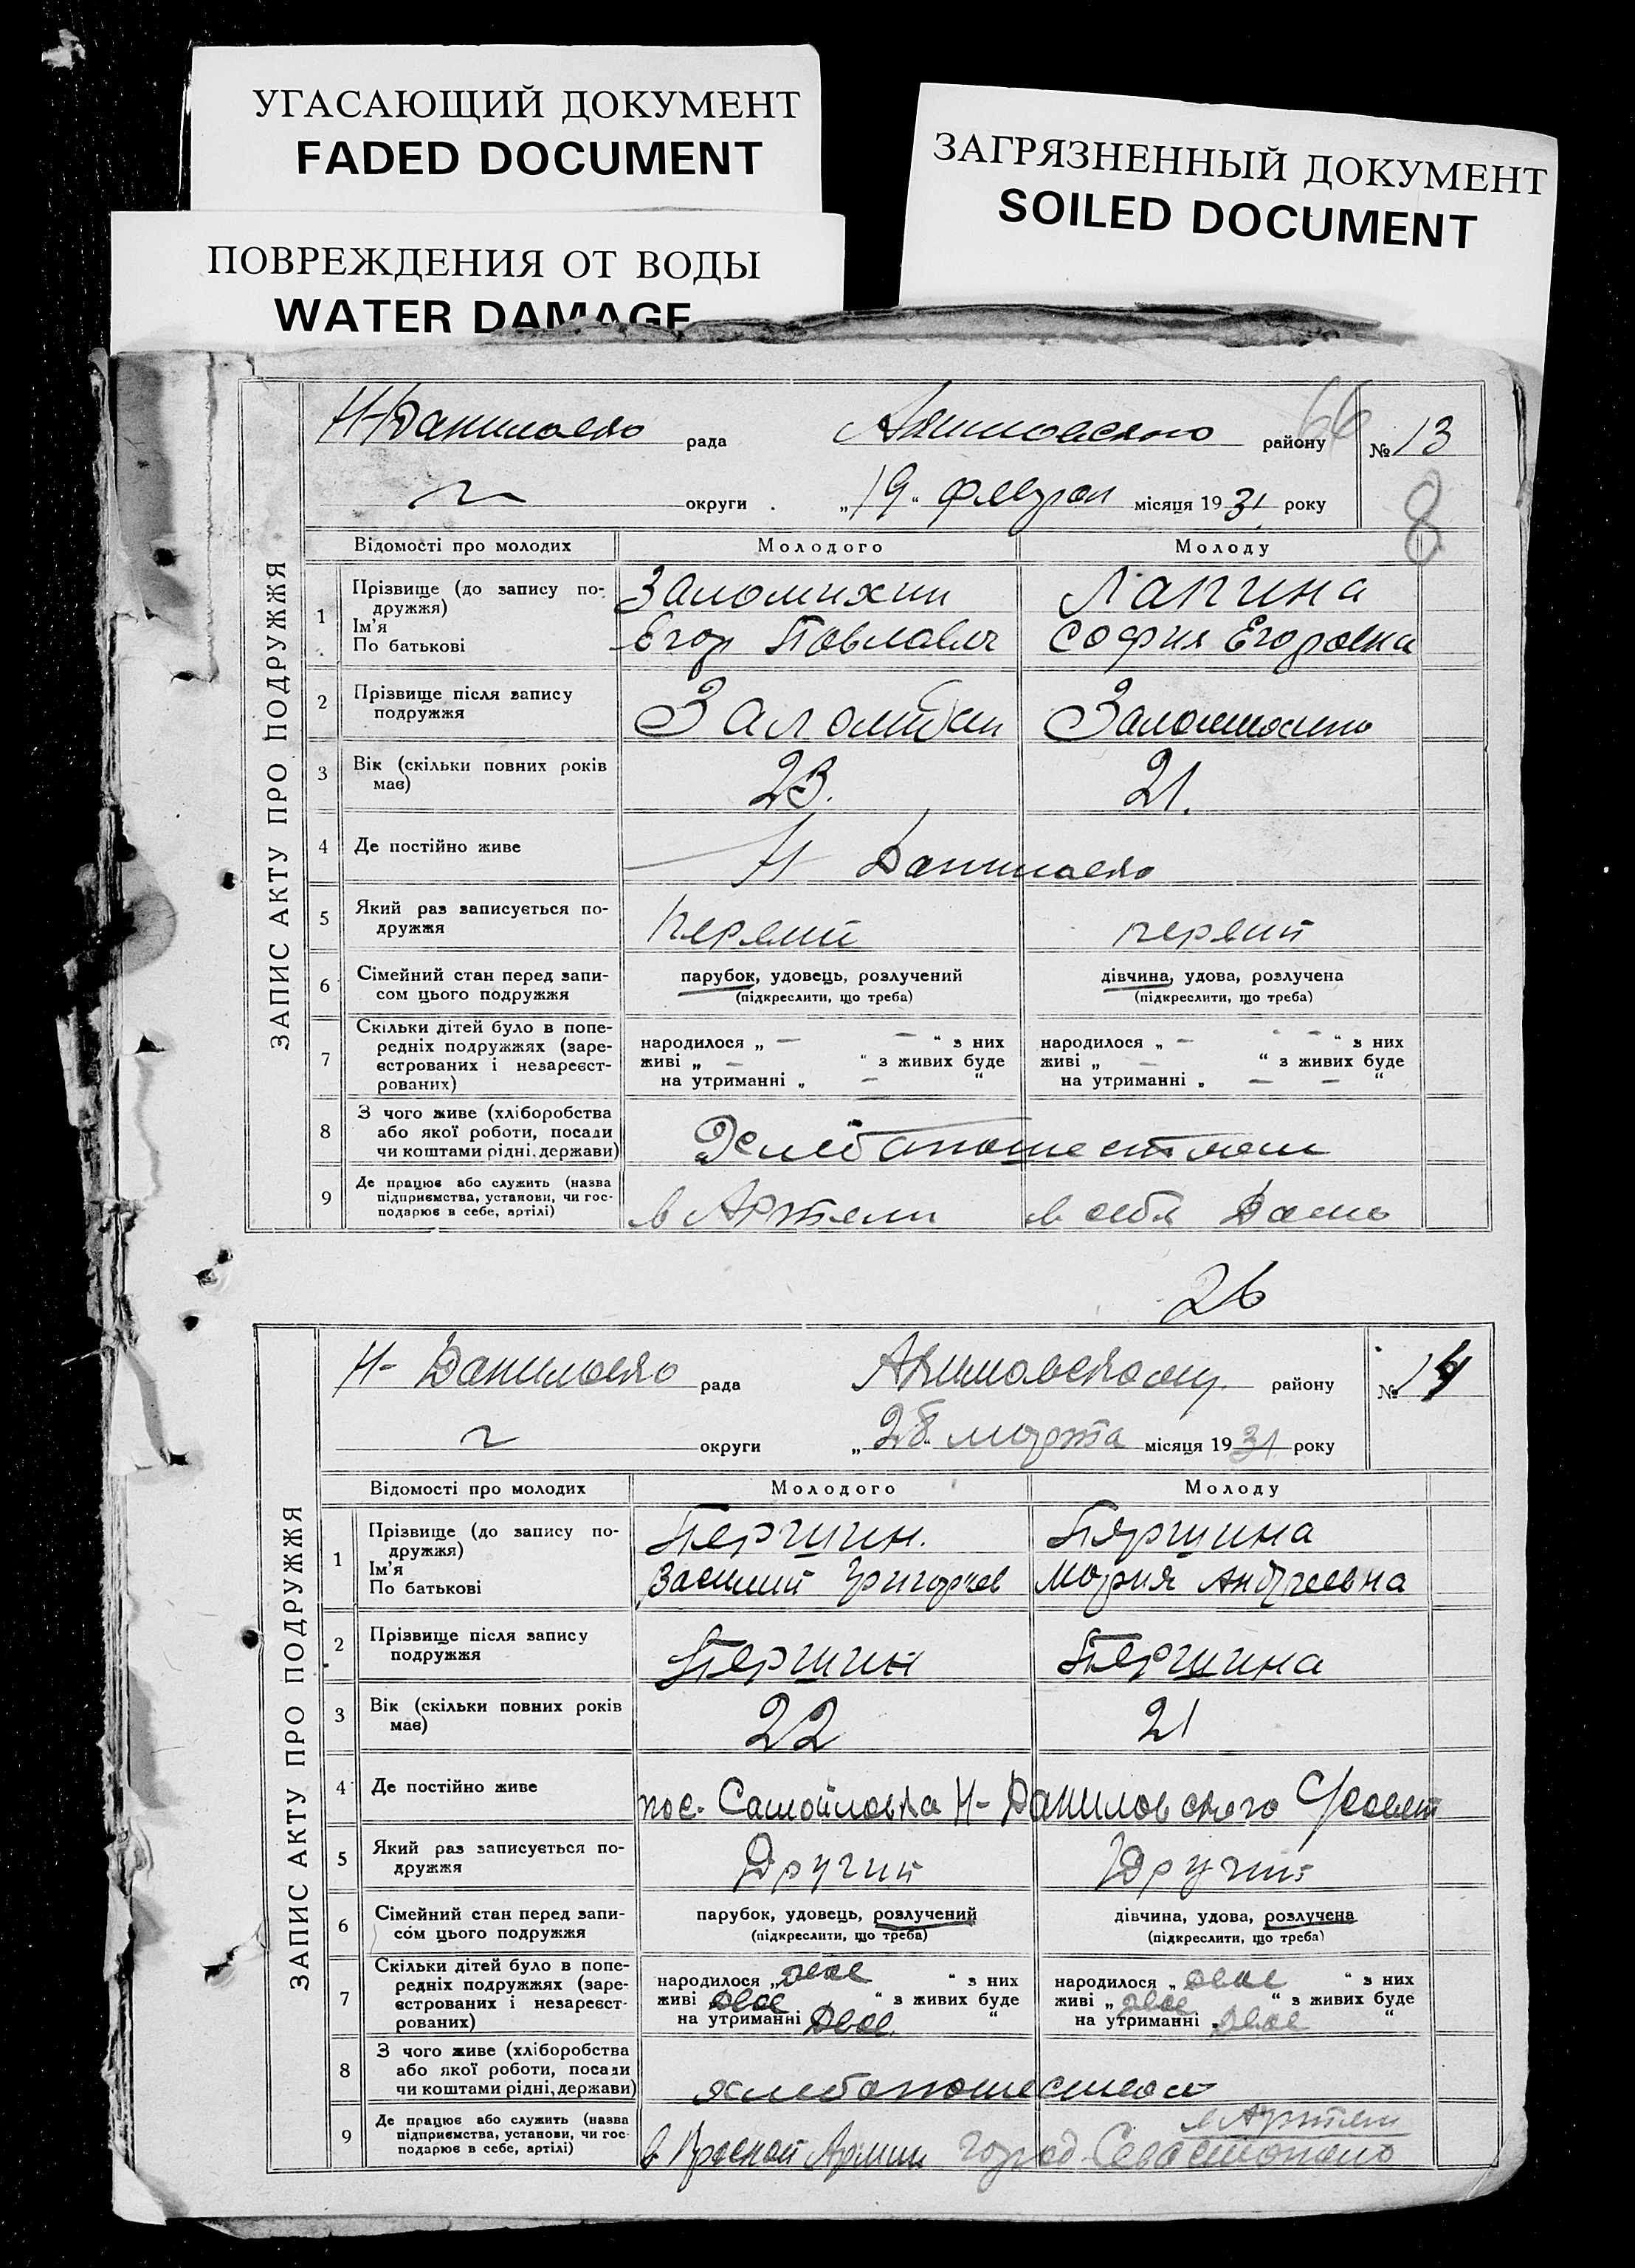 УГАСАЮЩИЙ ДОКУМЕНТ
FADED DOCUMENT
ЗАГРЯЗНЕННЫЙ ДОКУМЕНТ
SOILED DOCUMENT
ПОВРЕЖДЕНИЯ ОТ ВОДЫ
WATER DAMAGE
66
рада району № 13
округи „19“ місяця 1931 року
8
ЗАПИС АКТУ ПРО ПОДРУЖЖЯ
Відомості про молодих Молодого Молоду
1 Прізвище (до запису по-
дружжя) Лапина
Ім'я
По батькові Егор София Егоровна
2 Прізвище після запису
подружжя
3 Вік (скільки повних років
має) 23. 21.
4 Де постійно живе
5 Який раз записується по-
дружжя первий первий
6 Сімейний стан перед запи-
сом цього подружжя
парубок, удовець, розлучений дівчина, удова, розлучена
(підкреслити, що треба) (підкреслити, що треба)
7 Скільки дітей було в попе-
редніх подружжях (заре-
єстрованих і незареєст-
рованих)
народилося „ — — “ з них народилося „ — — “ з них
живі „ — “ з живих буде живі „ — “ з живих буде
на утриманні „ — “ на утриманні „ — — “
8 З чого живе (хліборобства
або якої роботи, посади
чи коштами рідні, держави)
9 Де працює або служить (назва
підприємства, установи, чи гос-
подарює в себе, артілі)
в Артели
26
рада району № 14
округи „28“ марта місяця 1931 року
ЗАПИС АКТУ ПРО ПОДРУЖЖЯ
Відомості про молодих Молодого Молоду
1 Прізвище (до запису по-
дружжя) Першин. Першина
Ім'я
По батькові Василий Мария Андреевна
2 Прізвище після запису
подружжя Першин Першина
3 Вік (скільки повних років
має) 22 21
4 Де постійно живе пос. Самойловка Н-Даниловского
5 Який раз записується по-
дружжя Другий Другий
6 Сімейний стан перед запи-
сом цього подружжя
парубок, удовець, розлучений дівчина, удова, розлучена
(підкреслити, що треба) (підкреслити, що треба)
7 Скільки дітей було в попе-
редніх подружжях (заре-
єстрованих і незареєст-
рованих)
народилося „двое “ з них народилося „двое “ з них
живі двое “ з живих буде живі „двое “ з живих буде
на утриманні двое “ на утриманні двое “
8 З чого живе (хліборобства
або якої роботи, посади
чи коштами рідні, держави)
9 Де працює або служить (назва
підприємства, установи, чи гос-
подарює в себе, артілі)
в Артели
в Красной Армии город